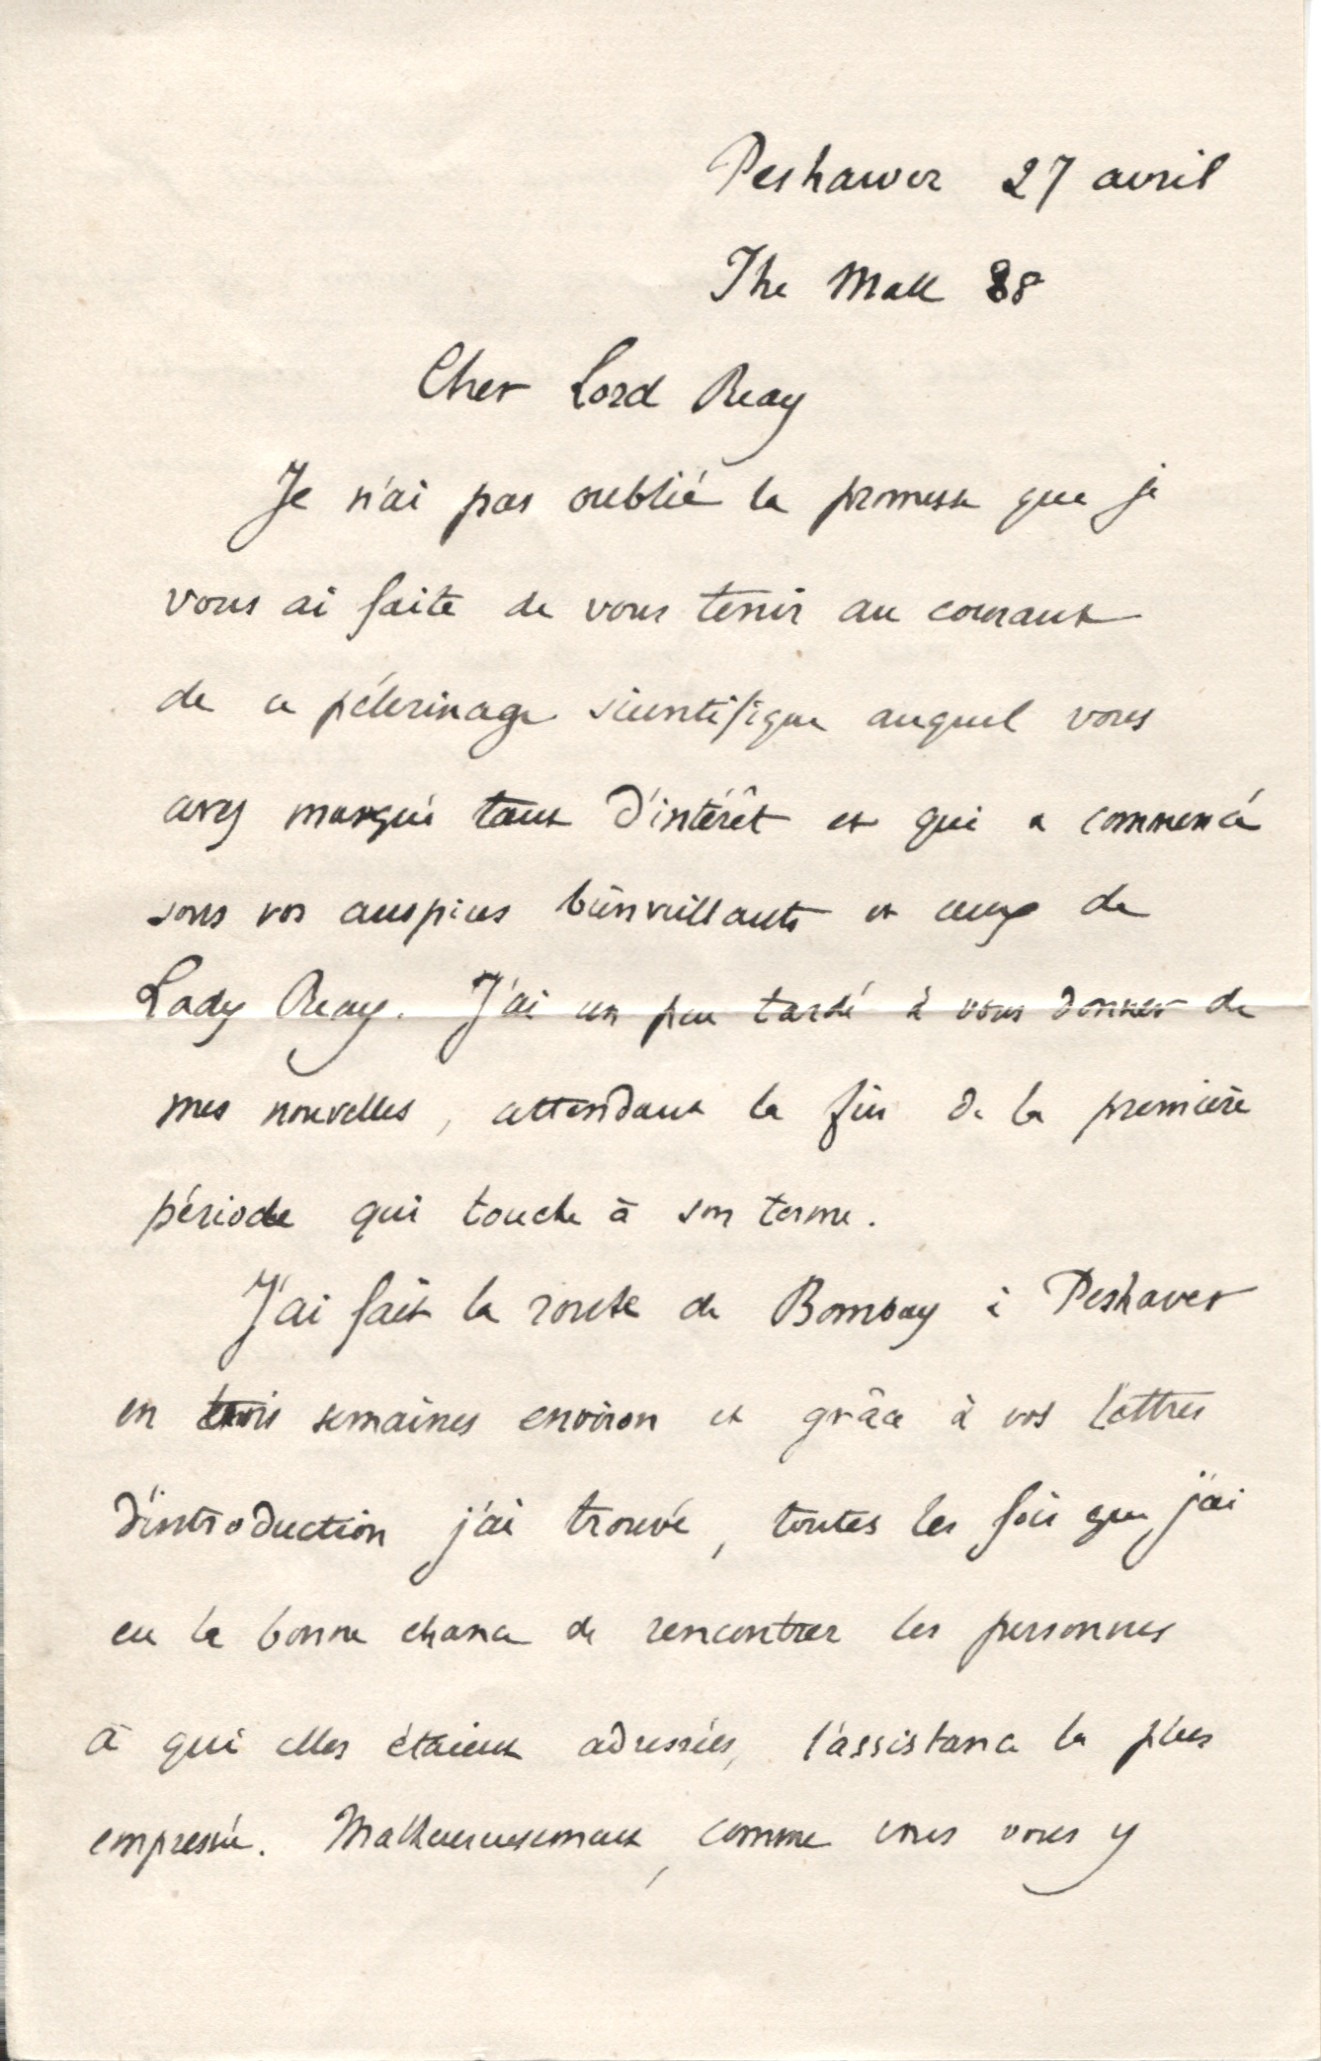 Peshawer 27 avril
The Mall 38
Cher Lord Reay
Je n'ai pas oublié la promesse que je
vous ai faite de vous tenir au courant
de ce pélerinage scientifique auquel vous
avez marqué tant d'intérêt et qui a commencé
sous vos auspices bienveillants et ceux de
Lady Reay. J'ai un peu tardé à vous donner de
mes nouvelles, attendant la fin de la première
période qui touche à son terme.
J'ai fait la route de Bombay à Peshaver
en trois semaines environ et grâce à vos lettres
d'introduction j'ai trouvé, toutes les fois que j'ai
eu la bonne chance de rencontrer les personnes
à qui elles étaient adressées, l'assistance la plus
empressée. Malheureusement, comme vous vous y